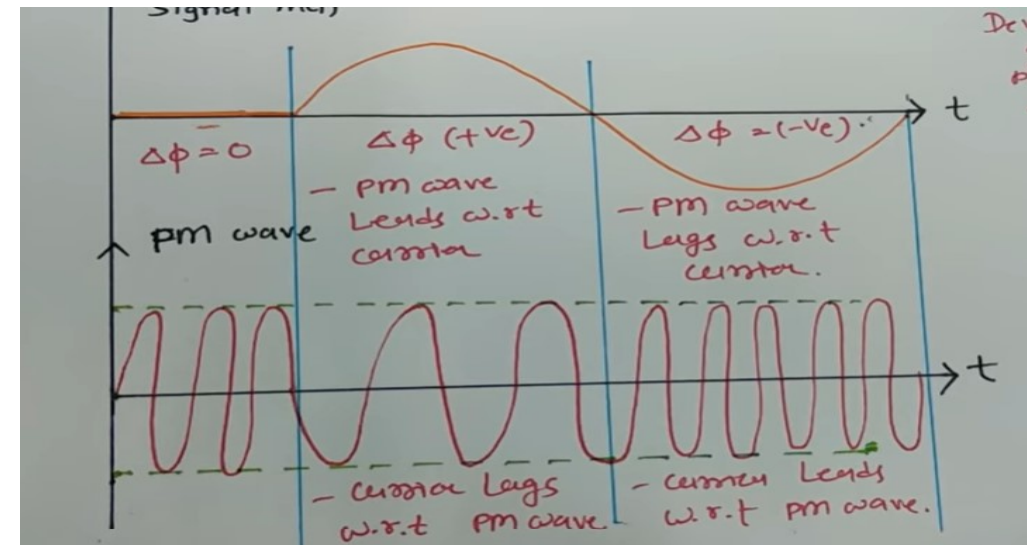 Signal m(t)
Dev
t
Δϕ = 0
Δϕ (+ve)
Δϕ = (-ve)
- PM wave
Leads w.r.t
carrier
- PM wave
Lags w.r.t
carrier.
PM wave
t
- carrier Lags
w.r.t PM wave
- carrier Leads
w.r.t PM wave.